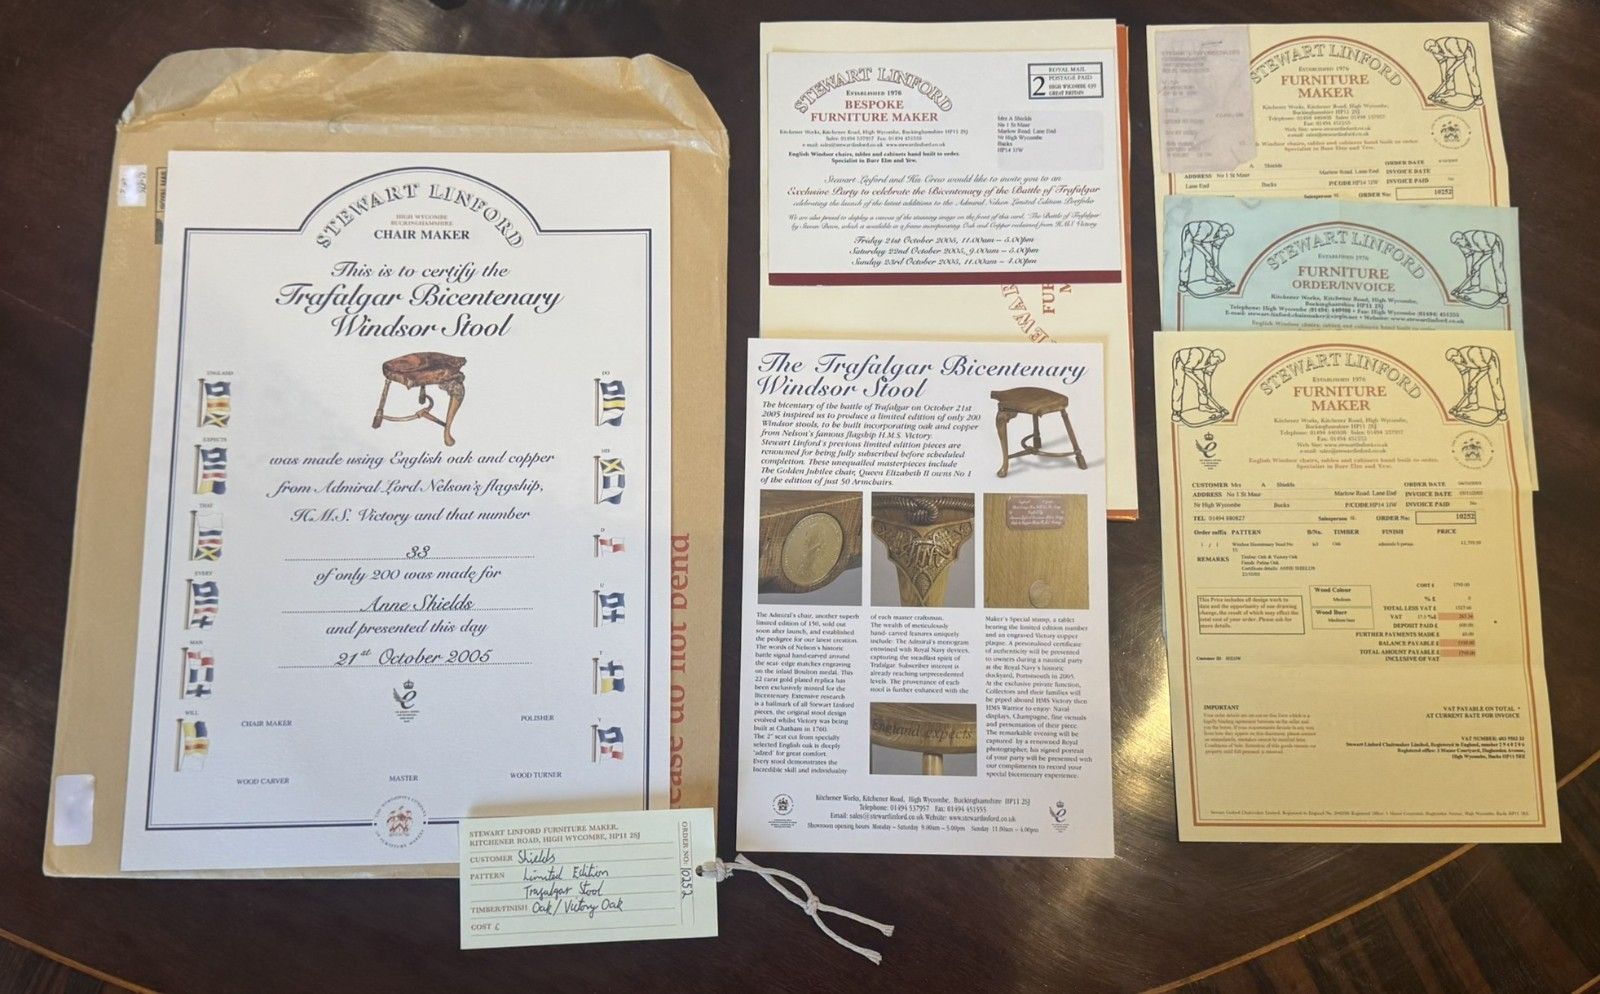 STEWART LINFORD
HIGH WYCOMBE
BUCKINGHAMSHIRE
CHAIR MAKER
This is to certify the
Trafalgar Bicentenary
Windsor Stool
ENGLAND
EXPECTS
THAT
EVERY
MAN
WILL
DO
HIS
D
U
T
Y
was made using English oak and copper
from Admiral Lord Nelson's flagship,
H.M.S. Victory and that number
33
of only 200 was made for
Anne Shields
and presented this day
21st October 2005
CHAIR MAKER
POLISHER
WOOD CARVER
MASTER
WOOD TURNER
ease do not bend
STEWART LINFORD FURNITURE MAKER,
KITCHENER ROAD, HIGH WYCOMBE, HP11 2SJ
CUSTOMER Shields
PATTERN Limited Edition
Trafalgar Stool
TIMBER/FINISH Oak / Victory Oak
COST £
ORDER NO: 10252
STEWART LINFORD
ESTABLISHED 1976
BESPOKE
FURNITURE MAKER
Kitchener Works, Kitchener Road, High Wycombe, Buckinghamshire HP11 2SJ
Sales: 01494 537957 Fax: 01494 451555
e-mail: sales@stewartlinford.co.uk www.stewartlinford.co.uk
English Windsor chairs, tables and cabinets hand built to order.
Specialist in Burr Elm and Yew.
2
ROYAL MAIL
POSTAGE PAID
HIGH WYCOMBE
GREAT BRITAIN
Mrs A Shields
No 1 St Maur
Marlow Road, Lane End
Nr High Wycombe
Bucks
HP14 3JW
Stewart Linford and His Crew would like to invite you to an
Exclusive Party to celebrate the Bicentenary of the Battle of Trafalgar
celebrating the launch of the latest additions to the Admiral Nelson Limited Edition Portfolio
We are also proud to display a canvas of the stunning image on the front of this card, 'The Battle of Trafalgar'
by Steven Dews, which is available in a frame incorporating Oak and Copper reclaimed from H.M.S Victory
Friday 21st October 2005, 11.00am – 5.00pm
Saturday 22nd October 2005, 9.00am – 5.00pm
Sunday 23rd October 2005, 11.00am – 4.00pm
The Trafalgar Bicentenary
Windsor Stool
The bicentary of the battle of Trafalgar on October 21st
2005 inspired us to produce a limited edition of only 200
Windsor stools, to be built incorporating oak and copper
from Nelson's famous flagship H.M.S. Victory.
Stewart Linford's previous limited edition pieces are
renowned for being fully subscribed before scheduled
completion. These unequalled masterpieces include
The Golden Jubilee chair, Queen Elizabeth II owns No 1
of the edition of just 50 Armchairs.
The Admiral's chair, another superb
limited edition of 150, sold out
soon after launch, and established
the pedigree for our latest creation.
The words of Nelson's historic
battle signal hand-carved around
the seat- edge matches engraving
on the inlaid Boulton medal. This
22 carat gold plated replica has
been exclusively minted for the
Bicentenary. Extensive research
is a hallmark of all Stewart Linford
pieces, the original stool design
evolved whilst Victory was being
built at Chatham in 1760.
The 2" seat cut from specially
selected English oak is deeply
'adzed' for great comfort.
Every stool demonstrates the
Incredible skill and individuality
of each master craftsman.
The wealth of meticulously
hand- carved features uniquely
include: The Admirals monogram
entwined with Royal Navy devices,
capturing the steadfast spirit of
Trafalgar. Subscriber interest is
already reaching unprecedented
levels. The provenance of each
stool is further enhanced with the
England expects
Maker's Special stamp, a tablet
bearing the limited edition number
and an engraved Victory copper
plaque. A personalised certificate
of authenticity will be presented
to owners during a nautical party
at the Royal Navy's historic
dockyard, Portsmouth in 2005.
At the exclusive private function,
Collectors and their families will
be piped aboard HMS Victory then
HMS Warrior to enjoy: Naval
displays, Champagne, fine victuals
and presentation of their piece.
The remarkable evening will be
captured by a renowned Royal
photographer, his signed portrait
of your party will be presented with
our compliments to record your
special bicentenary experience.
Kitchener Works, Kitchener Road, High Wycombe, Buckinghamshire HP11 2SJ
Telephone: 01494 537957 Fax: 01494 451555
Email: sales@stewartlinford.co.uk Website: www.stewartlinford.co.uk
Showroom opening hours Monday – Saturday 9.00am – 5.00pm Sunday 11.00am – 4.00pm
STEWART LINFORD
ESTABLISHED 1976
FURNITURE
MAKER
Kitchener Works, Kitchener Road, High Wycombe,
Buckinghamshire HP11 2SJ
English Windsor chairs, tables and cabinets hand built to order.
Specialist in Burr Elm and Yew.
A Shields
ORDER DATE
ADDRESS No 1 St Maur
Marlow Road, Lane End
INVOICE DATE
Lane End
Bucks
P/CODE HP14 3JW
INVOICE PAID
Salesperson
ORDER No: 10252
STEWART LINFORD
ESTABLISHED 1976
FURNITURE
ORDER/INVOICE
Kitchener Works, Kitchener Road, High Wycombe,
Buckinghamshire HP11 2SJ
STEWART LINFORD
ESTABLISHED 1976
FURNITURE
MAKER
Kitchener Works, Kitchener Road, High Wycombe,
Buckinghamshire HP11 2SJ
Telephone: 01494 440408 Sales: 01494 537957
Fax: 01494 451555
Web Site: www.stewartlinford.co.uk
e-mail: sales@stewartlinford.co.uk
English Windsor chairs, tables and cabinets hand built to order.
Specialist in Burr Elm and Yew.
CUSTOMER Mrs A Shields
ORDER DATE
ADDRESS No 1 St Maur
Marlow Road, Lane End
INVOICE DATE
Nr High Wycombe
Bucks
P/CODE HP14 3JW
INVOICE PAID No
TEL 01494 880827
Salesperson
ORDER No: 10252
Order suffix PATTERN
B/No.
TIMBER
FINISH
PRICE
REMARKS
Timber: Oak & Victory Oak
Finish: Patina Oak
Certificate details: ANNE SHIELDS
This Price includes all design work to
date and the opportunity of one drawing
change, the result of which may effect the
total cost of your order. Please ask for
more details.
Wood Colour
Medium
Wood Burr
Medium burr
COST £
% £
TOTAL LESS VAT £
VAT 17.5 %£
DEPOSIT PAID £
FURTHER PAYMENTS MADE £
BALANCE PAYABLE £
TOTAL AMOUNT PAYABLE £
INCLUSIVE OF VAT
IMPORTANT
VAT PAYABLE ON TOTAL *
AT CURRENT RATE FOR INVOICE